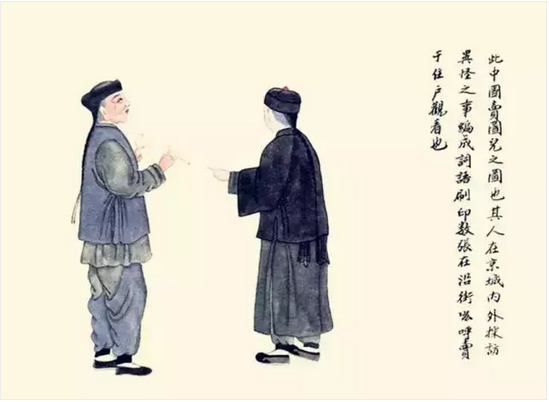 此中國賣圖兒之圖也其人在京城内外採訪
異怪之事編成詞語刷印数張在沿街吆呼賣
于住戶觀看也